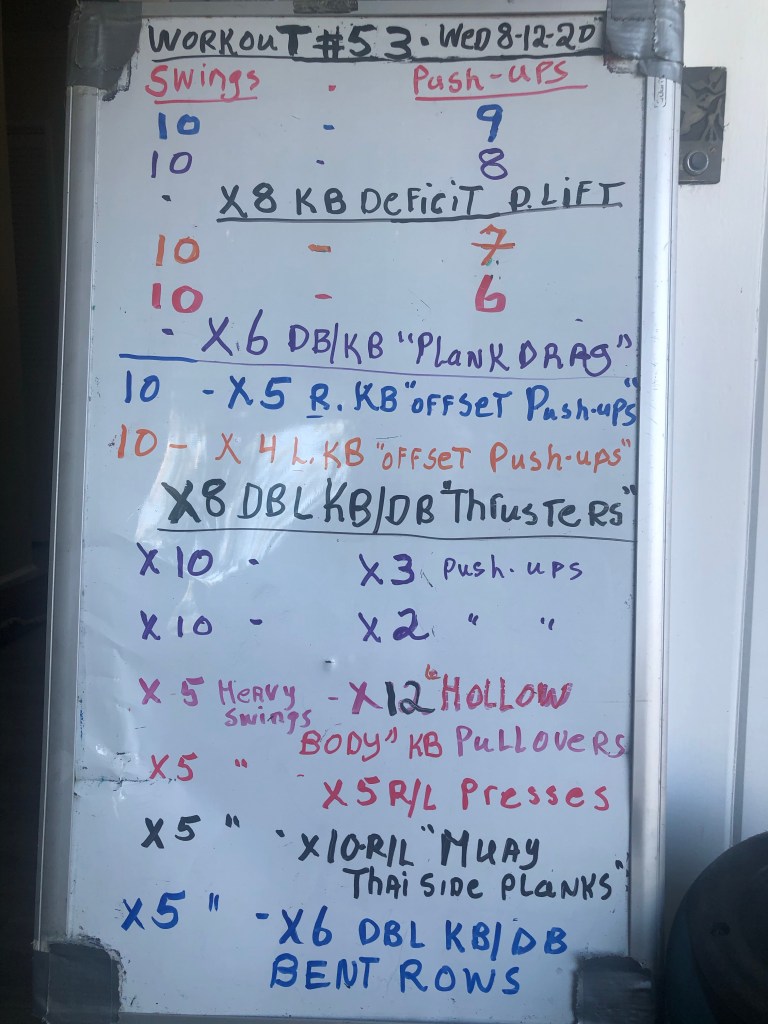 WORKOUT #53 · WED 8-12-20
Swings · Push-ups
10 - 9
10 - 8
· X8 KB DEFICIT D.LIFT
10 - 7
10 - 6
- X.6 DB/KB "PLANK DRAG"
10 - X5 R. KB "OFFSET Push-ups"
10 - X 4 L. KB "OFFSET Push-ups"
X8 DBL KB/DB "ThrusTeRs"
X 10 - X3 Push-ups
X 10 - X2 " "
X 5 HEAVY - X12 "HOLLOW
Swings
BODY" KB PullovERS
X5 " X5 R/L Presses
X5 " · X10-R/L "MUAY
THai SiDE PLANKS"
X5 " - X6 DBL KB/DB
BENT ROWS